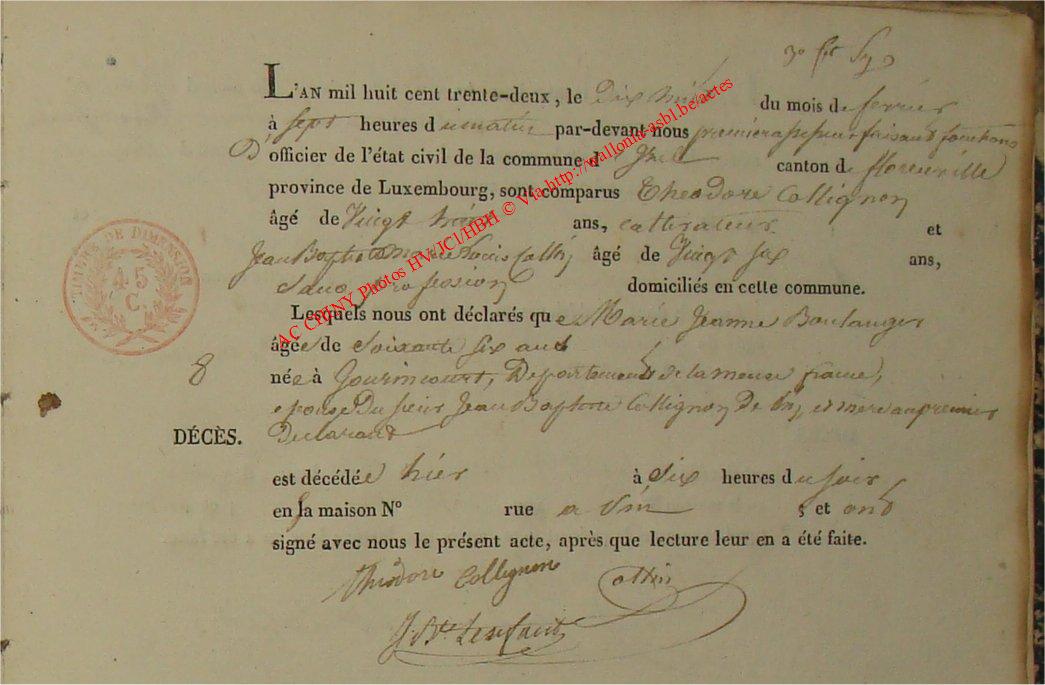 L'AN mil huit cent trente-deux, le Dix huit du mois de ferrier
à sept heures du matin par-devant nous premier assesseur faisant fonctions
D'officier de l'état civil de la commune d canton de florenville
province de Luxembourg, sont comparus Theodore Collignon
âgé de Vingt ans, cultivateur et
Jean Baptiste Marie Louis Collin âgé de Vingt six ans,
Sans profession domiciliés en cette commune.
Lesquels nous ont déclarés que Marie Jeanne Boulanger
âgée de Soixante six ans
8 née à Jourincourt, Departement de la meuse france,
epouse du sieur Jean Baptiste Collignon De et mere au premier
DÉCÈS. Declarant
est décédée hier à Six heures du soir
en la maison N° rue a ; et ont
signé avec nous le présent acte, après que lecture leur en a été faite.
Théodore Collignon Collin
J. Bte Lenfant
TIMBRE DE DIMENSION
45
C.
AC CHINY Photos HV/JC1/HBH © Via http://wallonia-asbl.be/actes